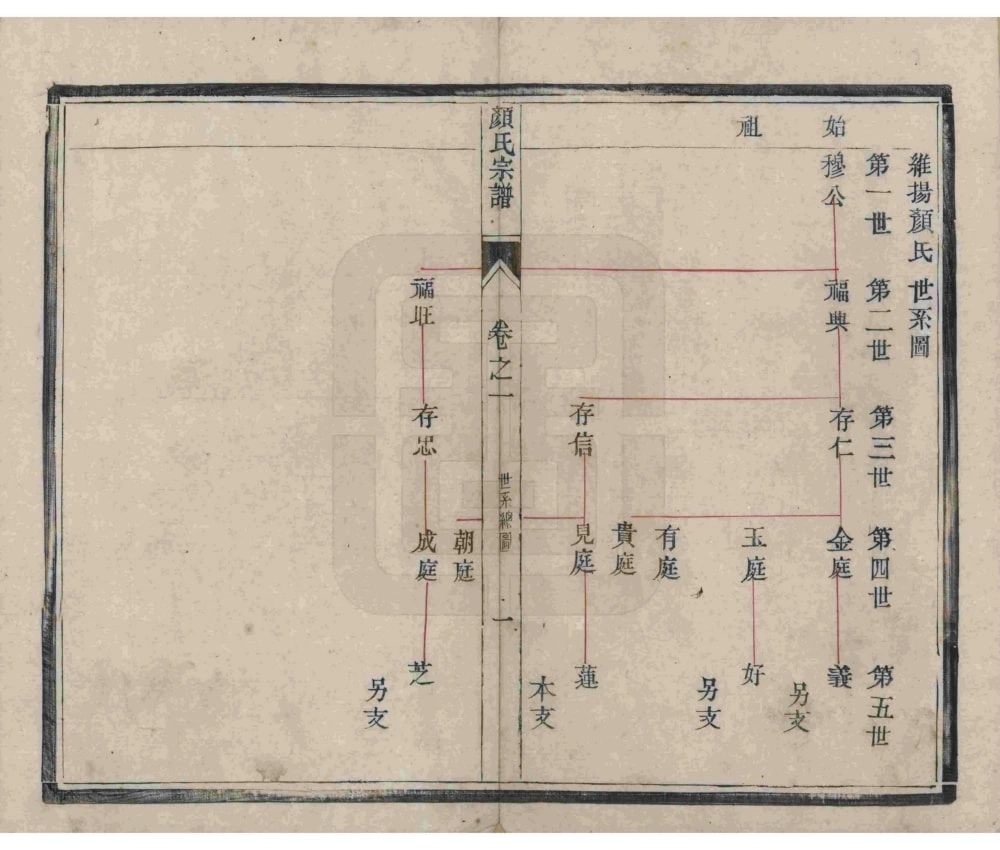 維揚顏氏世系圖
第一世
第二世
第三世
第四世
第五世
始
祖
穆公
福興
存仁
金庭
義
另支
玉庭
好
另支
有庭
貴庭
存信
見庭
蓮
本支
顏氏宗譜
卷之一
世系總圖
一
朝庭
福旺
存忠
成庭
芝
另支